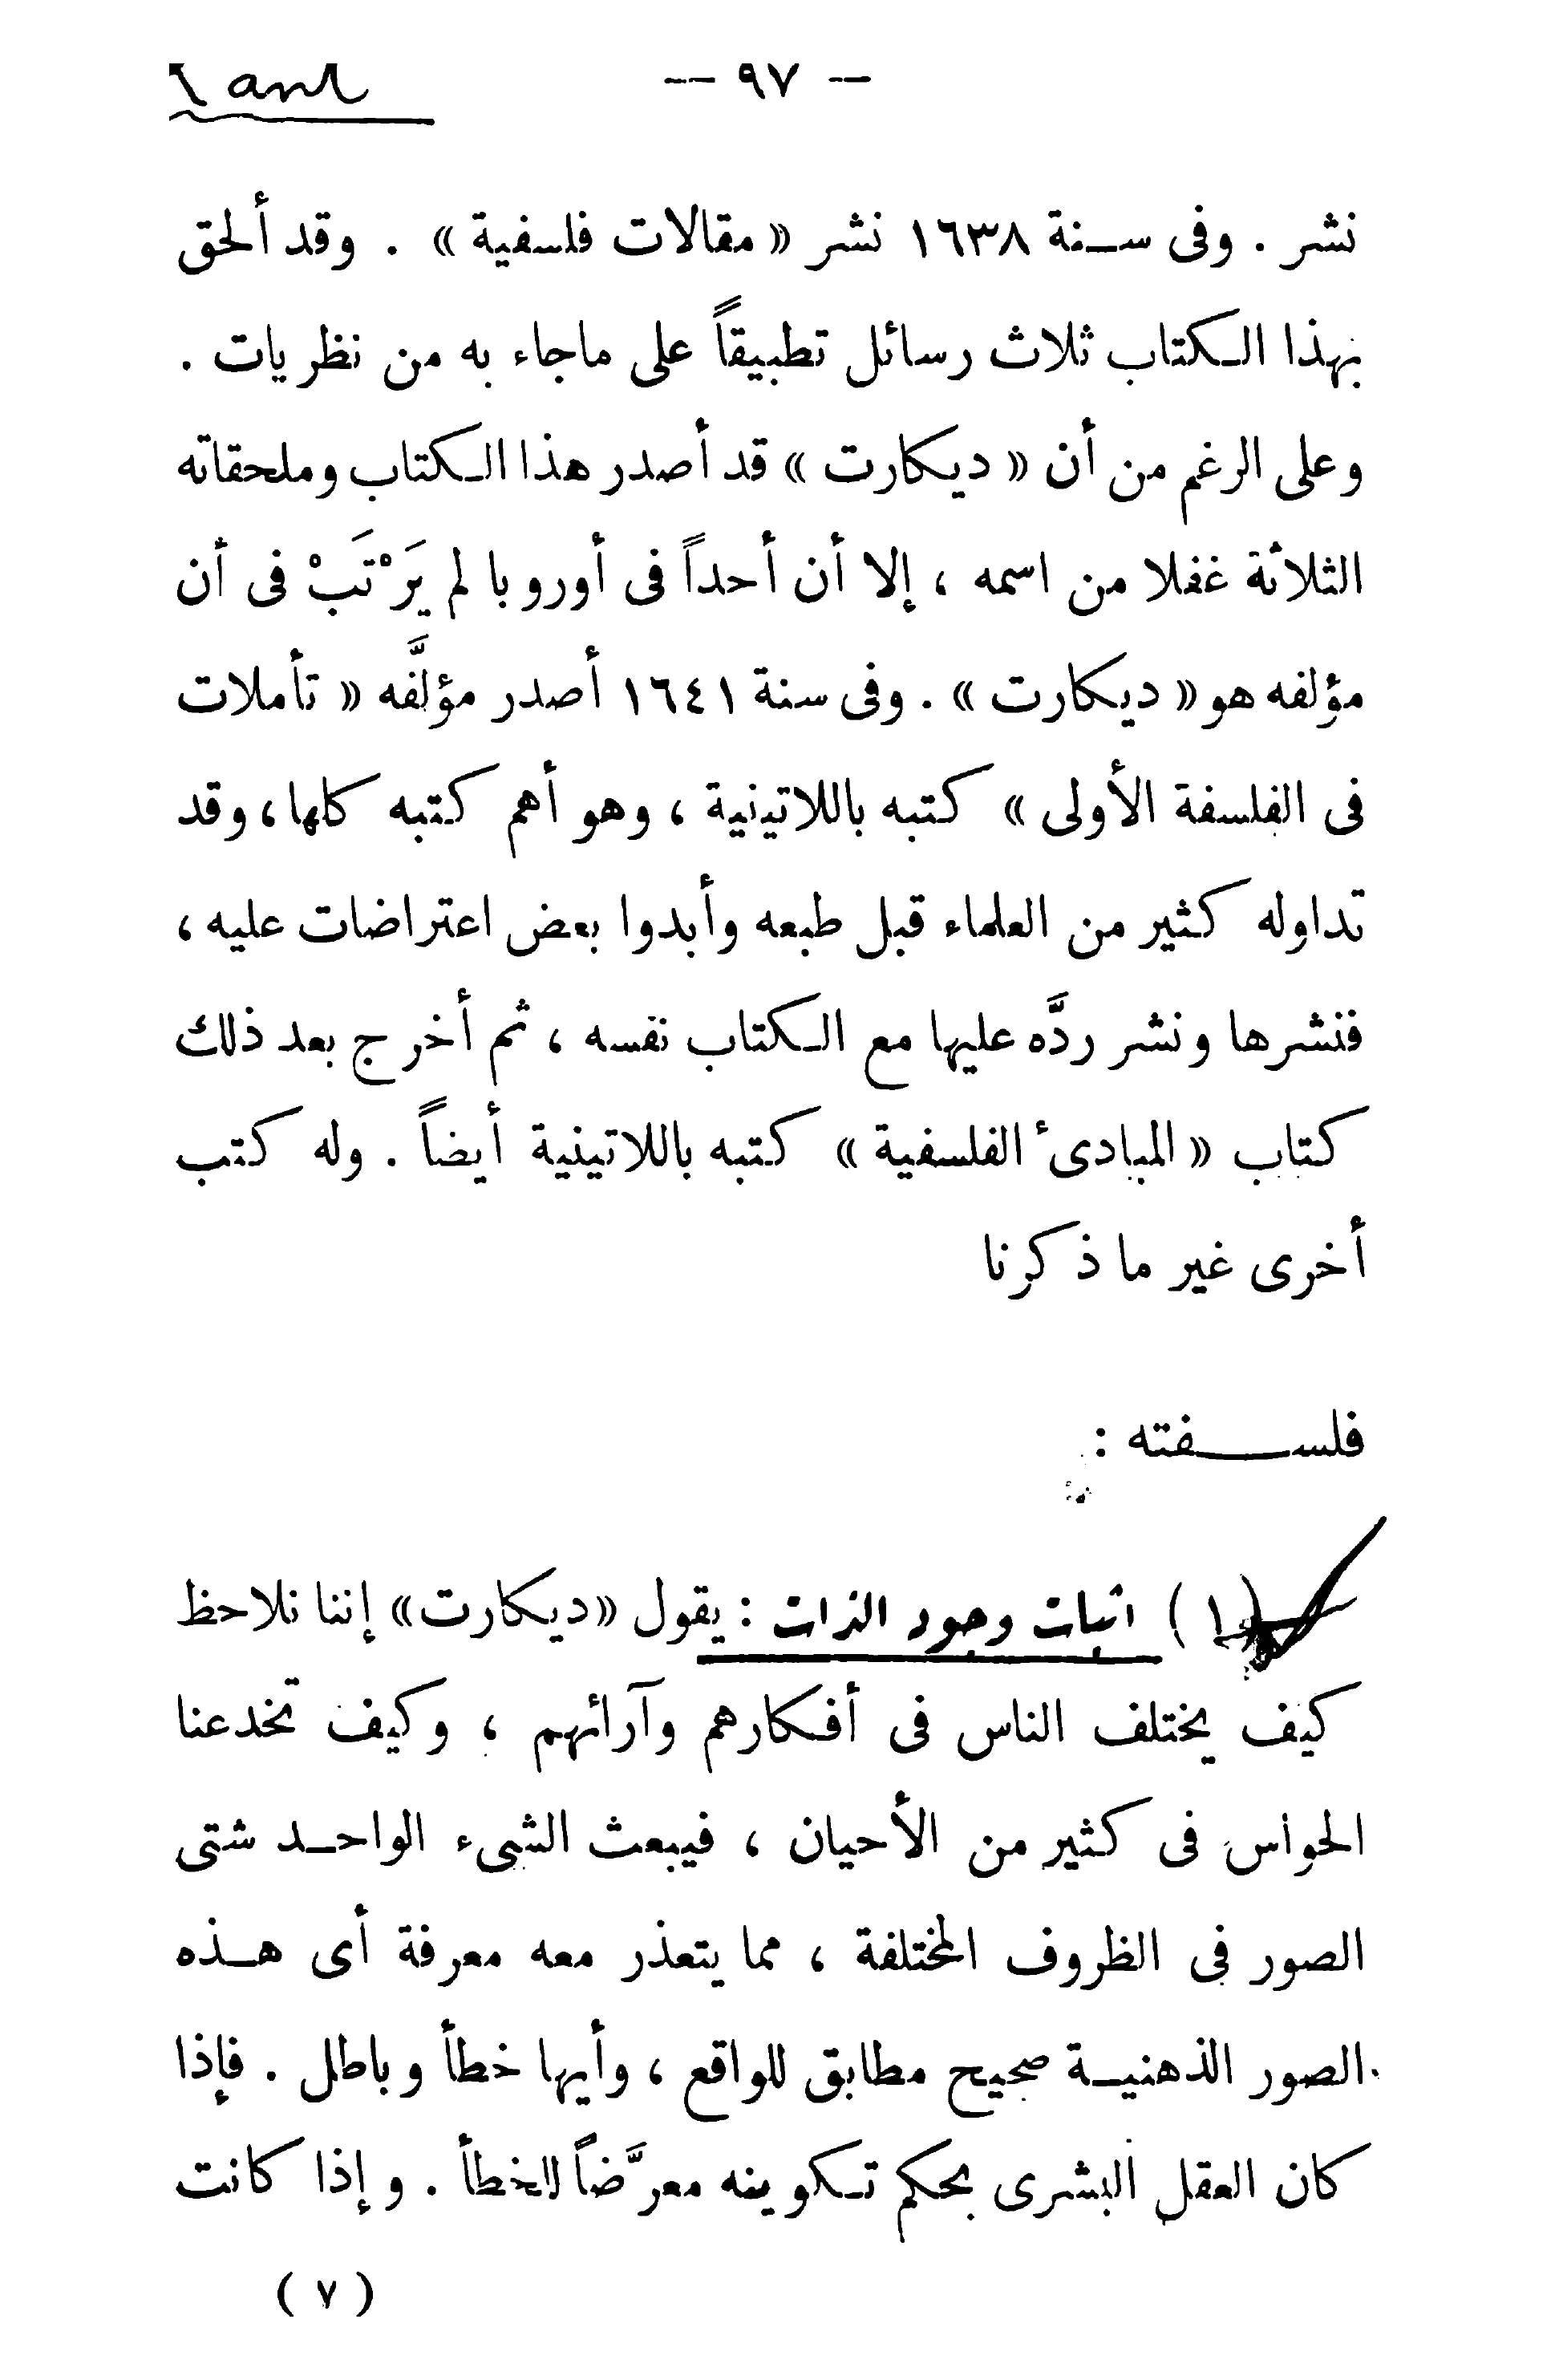 — ٩٧ —
نشر . وفى سنة ١٦٣٨ نشر « مقالات فلسفية » . وقد ألحق
بهذا الكتاب ثلاث رسائل تطبيقاً على ماجاء به من نظريات .
وعلى الرغم من أن « ديكارت » قد أصدر هذا الكتاب وملحقاته
الثلاثة غفلا من اسمه ، إلا أن أحداً فى أوروبا لم يَرْتَبْ فى أن
مؤلفه هو « ديكارت » . وفى سنة ١٦٤١ أصدر مؤلَّفه « تأملات
فى الفلسفة الأولى » كتبه باللاتينية ، وهو أهم كتبه كلها ، وقد
تداوله كثير من العلماء قبل طبعه وأبدوا بعض اعتراضات عليه ،
فنشرها ونشر ردَّه عليها مع الكتاب نفسه ، ثم أخرج بعد ذلك
كتاب « المبادىٔ الفلسفية » كتبه باللاتينية أيضاً . وله كتب
أخرى غير ما ذكرنا
فلسفته :
(١) اثبات وجود الذات : يقول «ديكارت» إننا نلاحظ
كيف يختلف الناس فى أفكارهم وآرائهم ، وكيف تخدعنا
الحواس فى كثير من الأحيان ، فيبعث الشىء الواحد شتى
الصور فى الظروف المختلفة ، مما يتعذر معه معرفة أى هذه
الصور الذهنية صحيح مطابق للواقع ، وأيها خطأ وباطل . فإذا
كان العقل البشرى بحكم تكوينه معرَّضاً للخطأ . وإذا كانت
( ٧ )